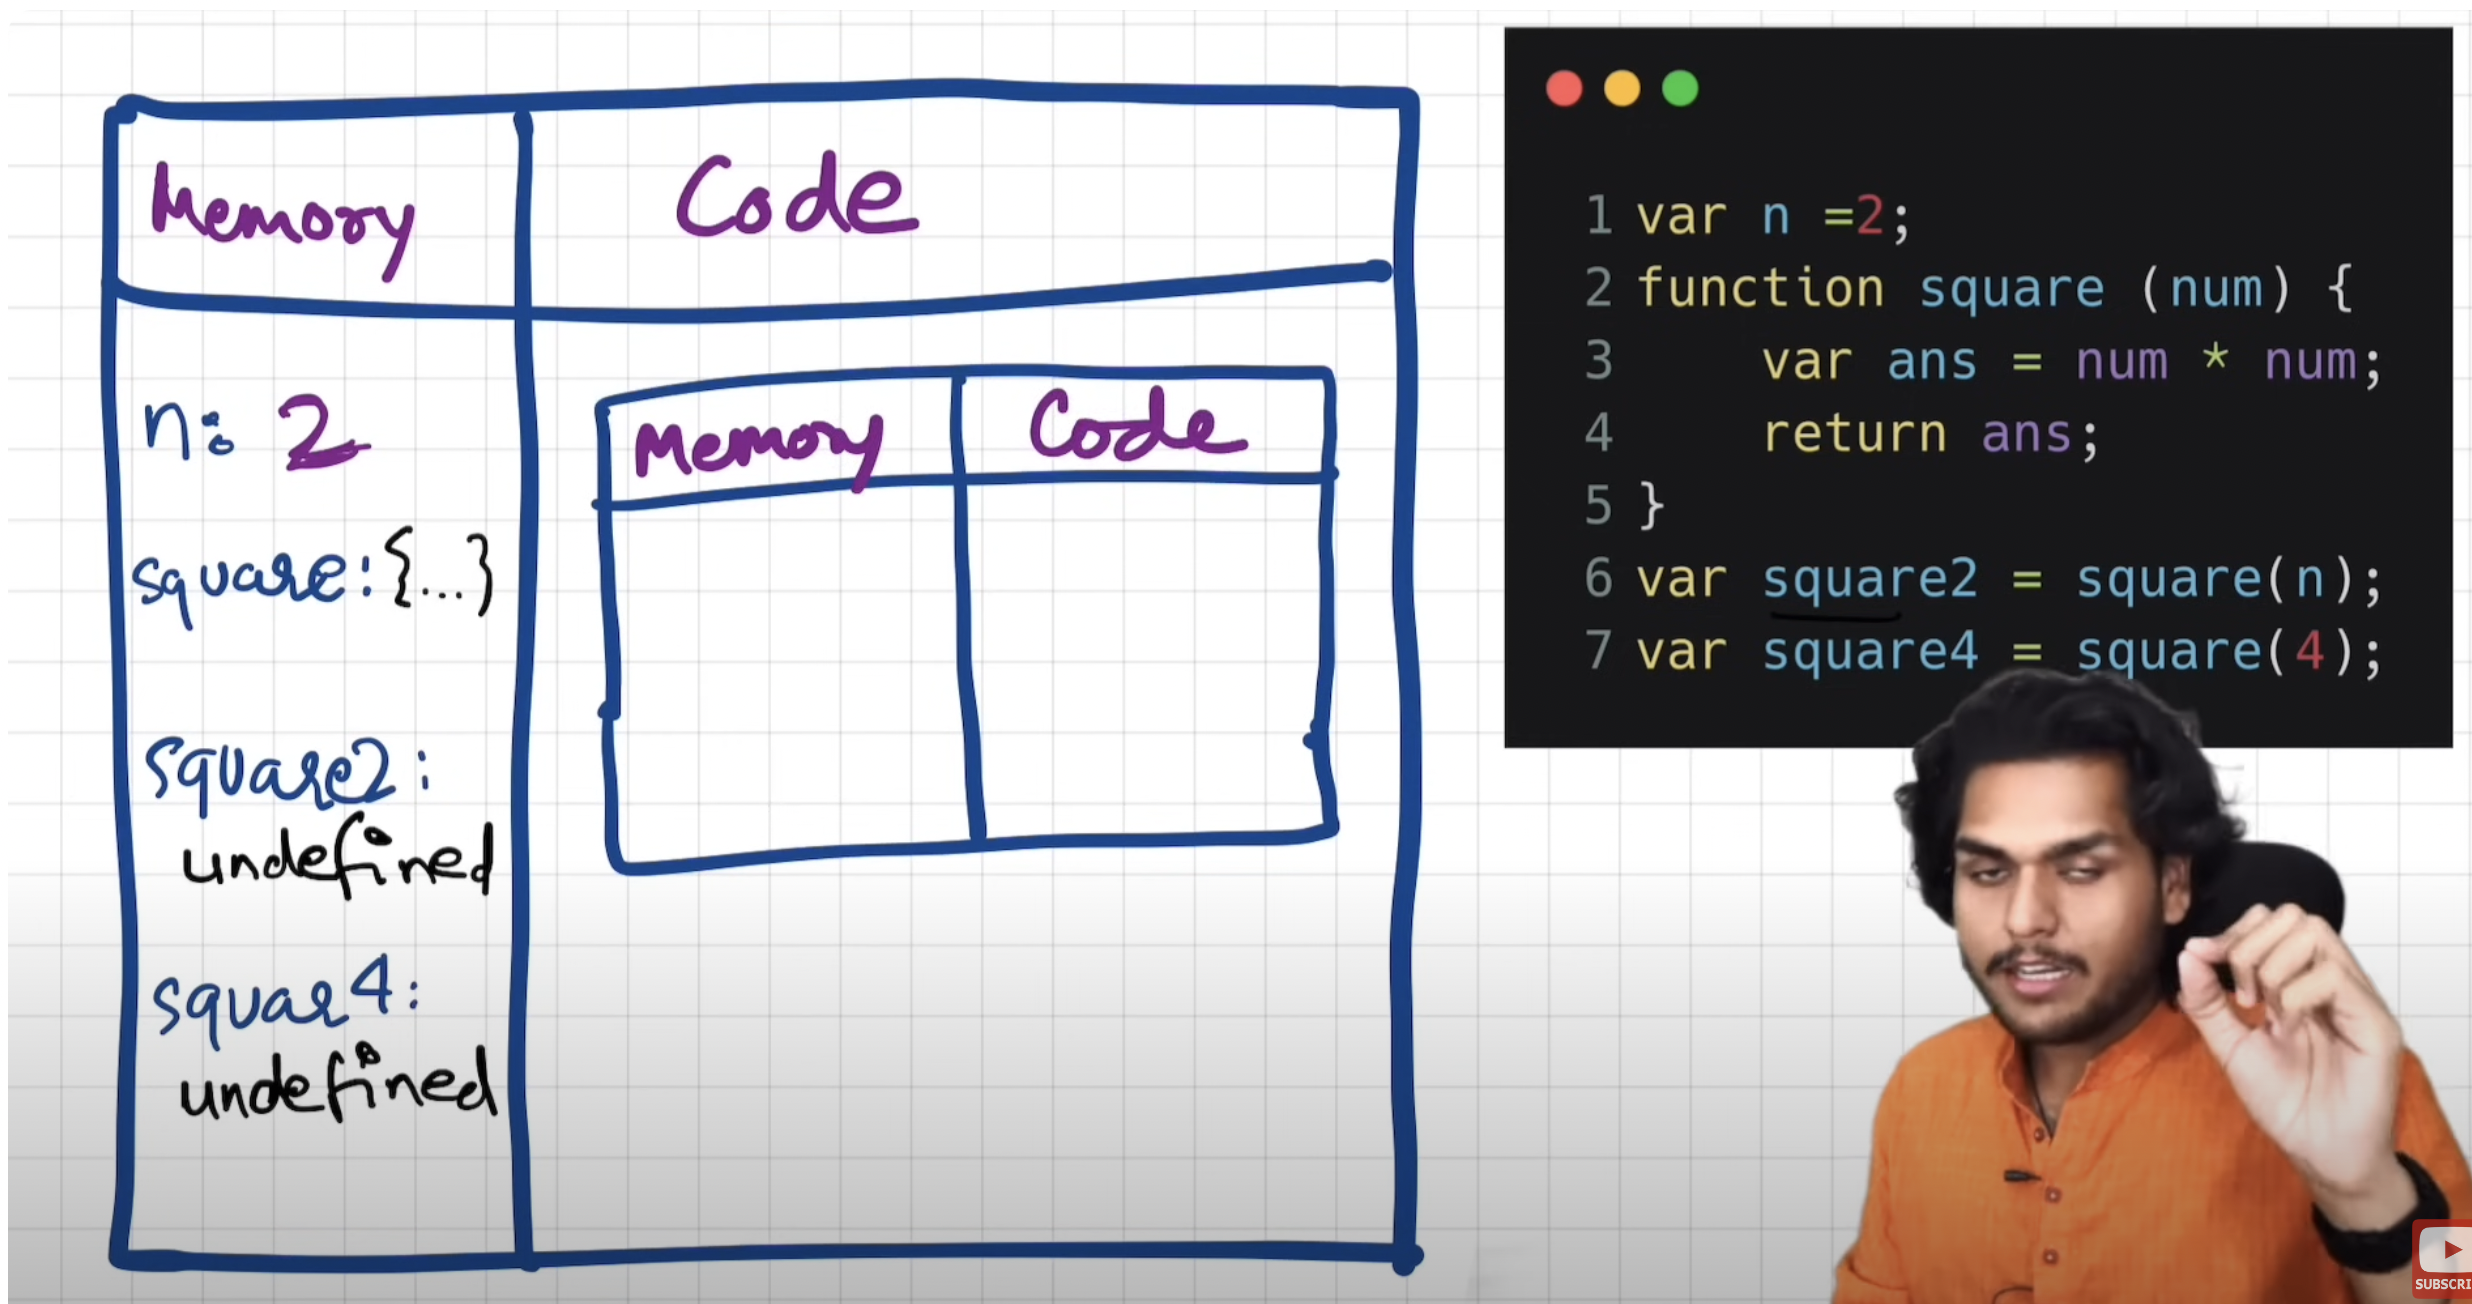 Memory
Code
n: 2
square:{...}
square2:
undefined
squar4:
undefined
Memory
Code
1 var n =2;
2 function square (num) {
3 var ans = num * num;
4 return ans;
5 }
6 var square2 = square(n);
7 var square4 = square(4);
SUBSCRI